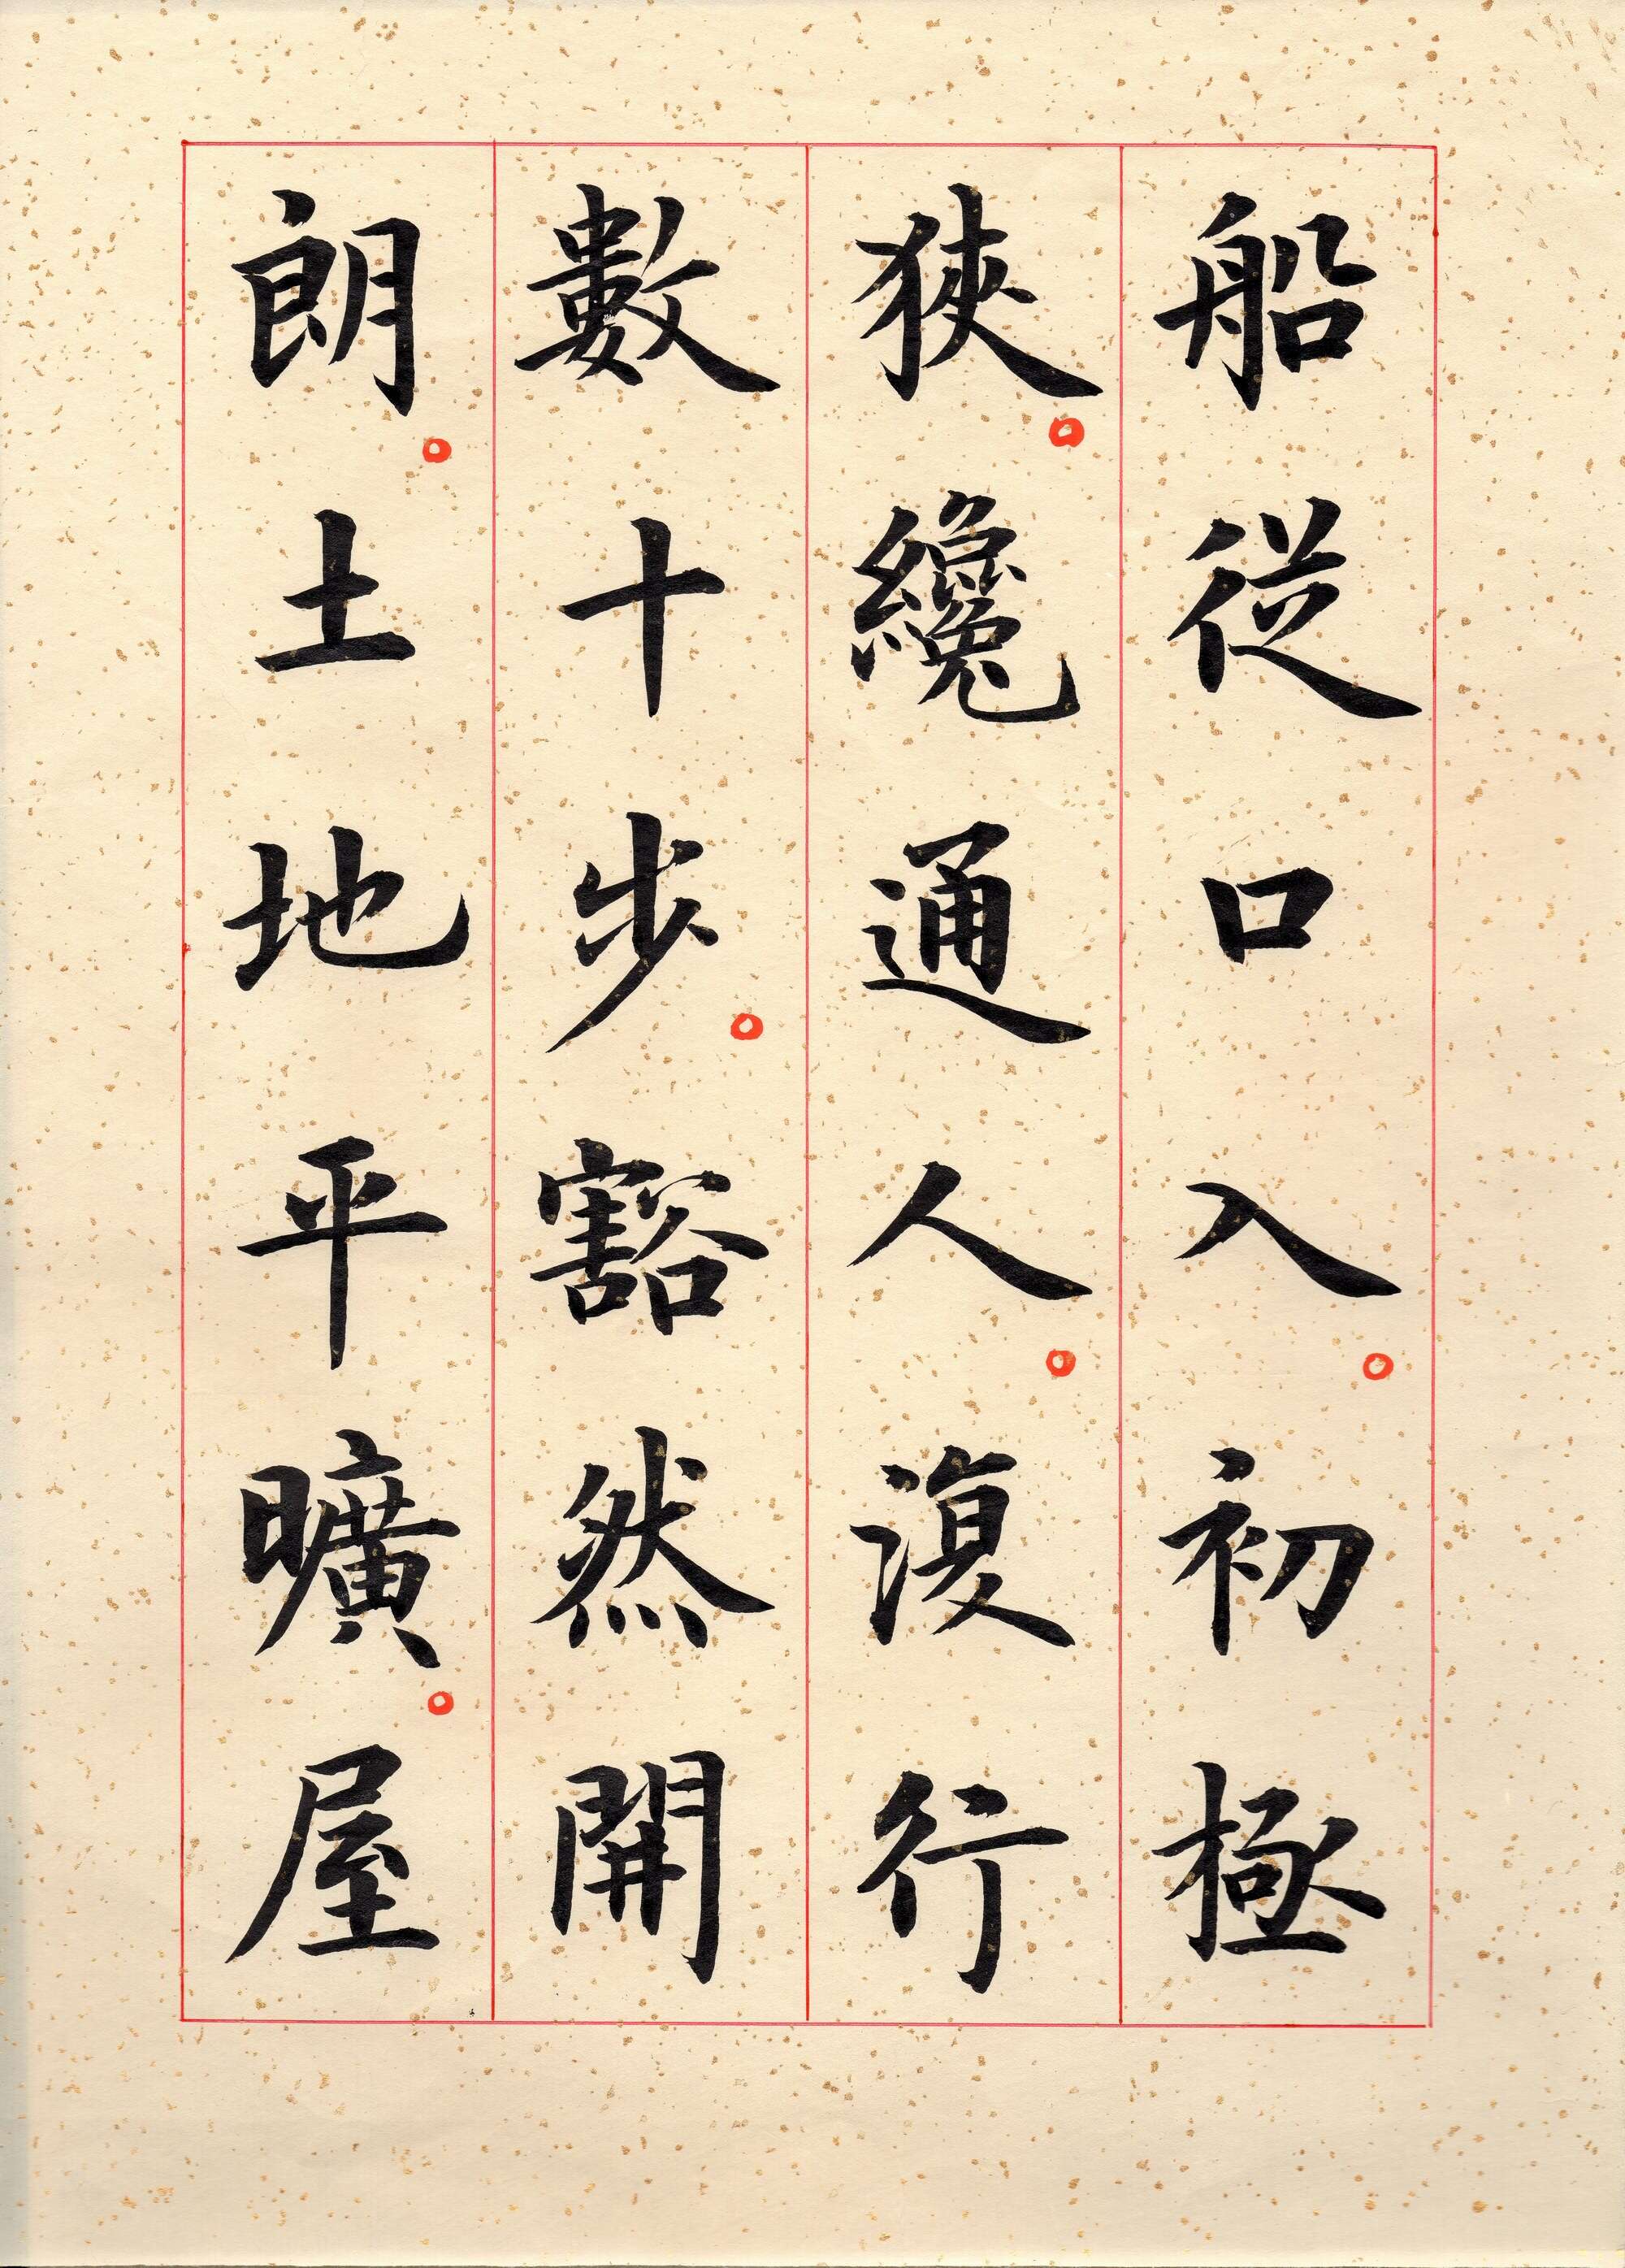 船從口入。初極
狹。纔通人。復行
數十步。豁然開
朗。土地平曠。屋